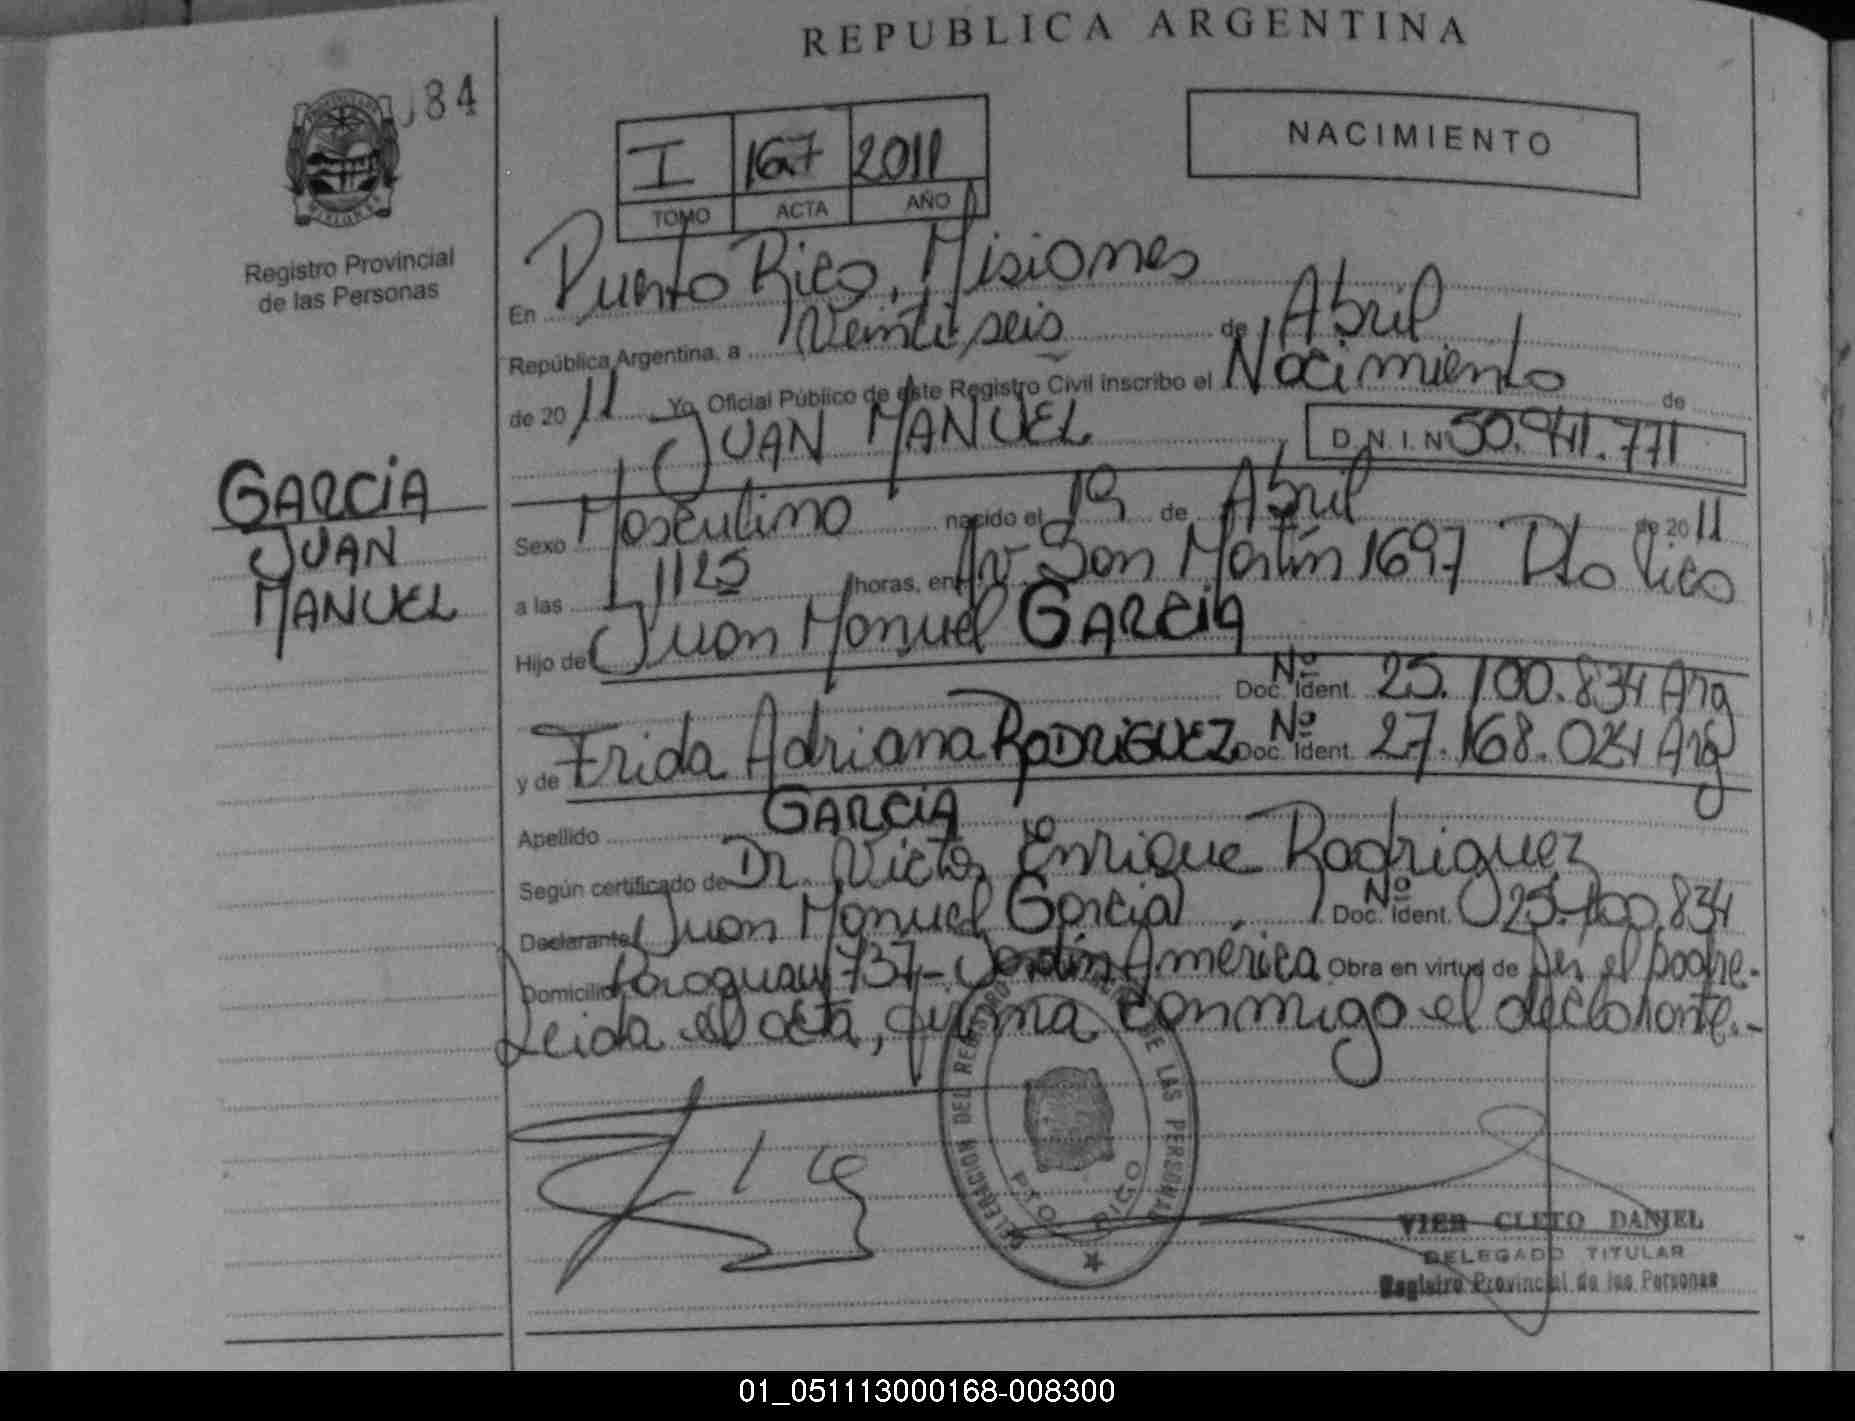 REPUBLICA ARGENTINA
84
NACIMIENTO
I 167 2011
TOMO ACTA AÑO
PROVINCIA DE MISIONES
Registro Provincial
de las Personas
En Puerto Rico, Misiones
República Argentina, a Veintiseis de Abril
de 2011 Yo, Oficial Público de este Registro Civil inscribo el Nacimiento de
JUAN MANUEL D.N.I. Nº 50.941.771
GARCIA
JUAN
MANUEL
Sexo Masculino nacido el 19 de Abril de 2011
a las 1125 horas, en Av San Martín 1697 Pto Rico
Hijo de Juan Manuel GARCIA
Nº Doc. Ident. 25.100.834 Arg
y de Frida Adriana RODRIGUEZ Nº Doc. Ident. 27.168.024 Arg
Apellido GARCIA
Según certificado de Dr. Victor Enrique Rodriguez
Declarante Juan Manuel Garcia Nº Doc. Ident. 25.100.834
Domicilio Paraguay 737- Jardín América Obra en virtud de Ser el padre.
Leida el acta, firma conmigo el declarante.-
DELEGACION DEL REGISTRO DE LAS PERSONAS
PTO. RICO
VIER CLETO DANIEL
DELEGADO TITULAR
Registro Provincial de las Personas
01_051113000168-008300